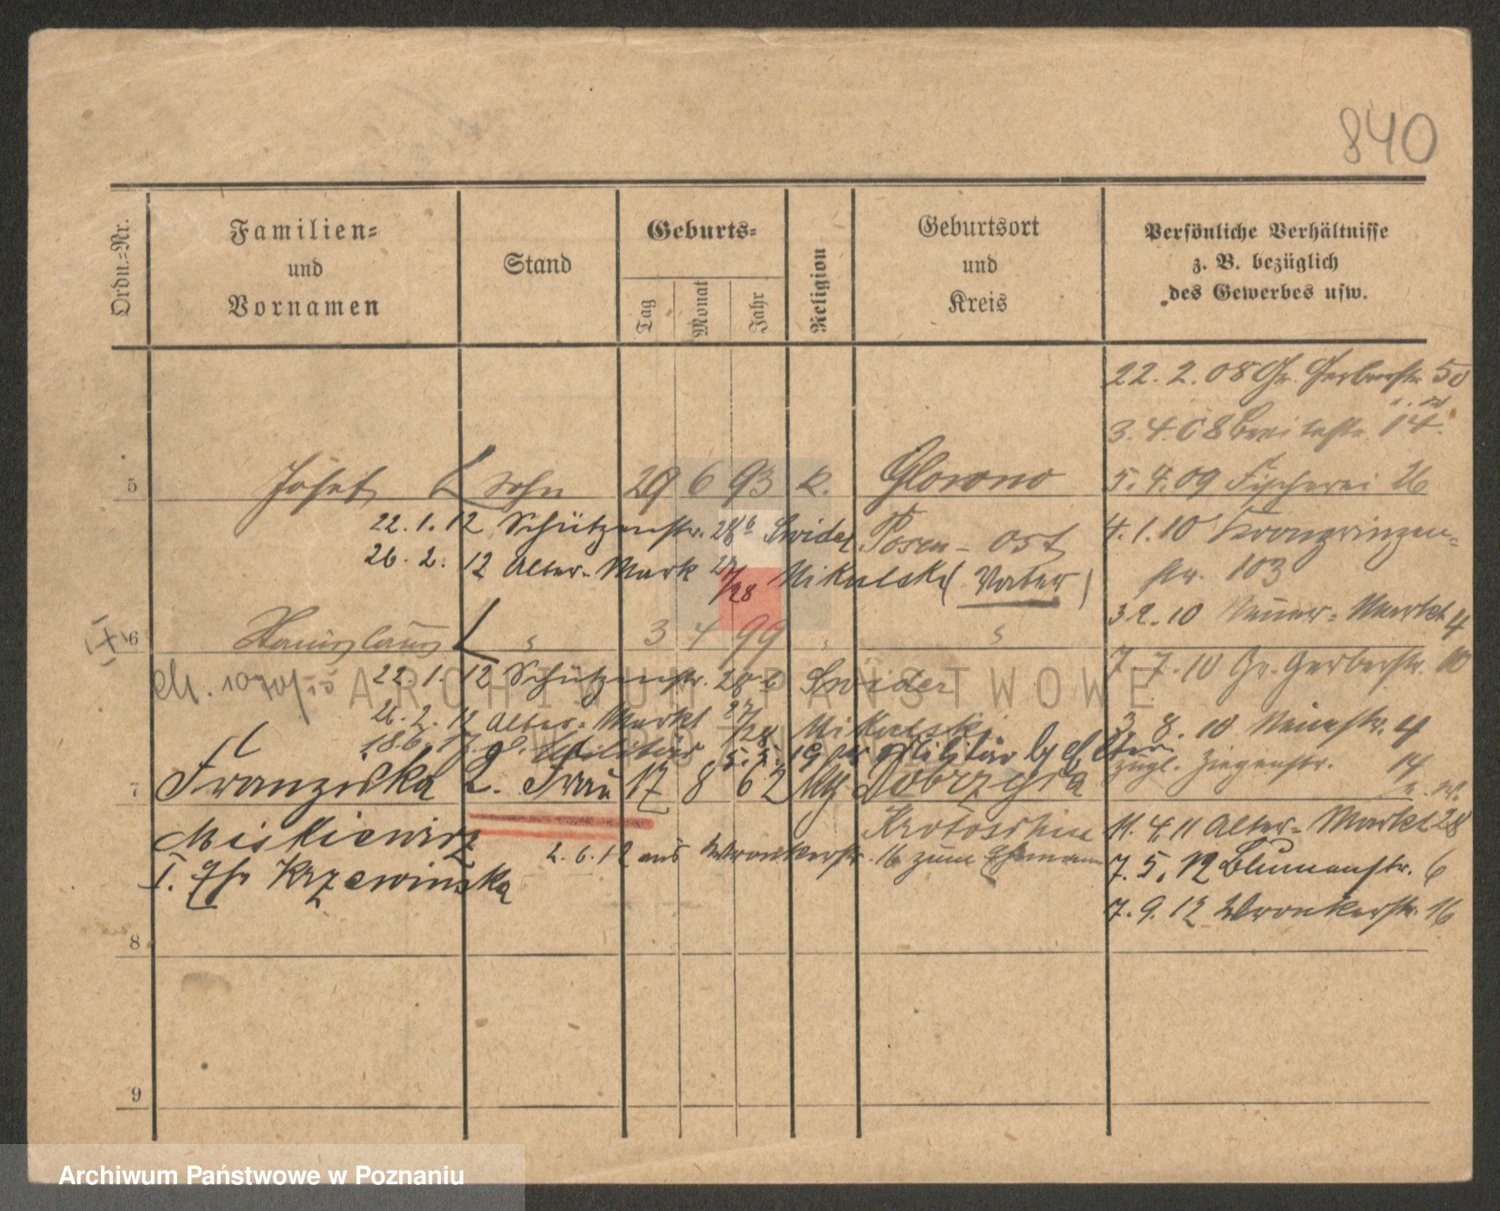 840
Ordn.-Nr.
Familien-
und
Vornamen
Stand
Geburts-
Tag
Monat
Jahr
Religion
Geburtsort
und
Kreis
Persönliche Verhältnisse
z. B. bezüglich
des Gewerbes usw.
22. 2. 08 Gr. Gerberstr. 50
3. 4. 08 Breitestr. 14.
5 Josef Sohn 29 6 93 k. Glowno
5. 4. 09 Fischerei 26
22. 1. 12 Schützenstr. 28b Swider Posen-Ost
4. 1. 10 Kronprinzen-
26. 2. 12 Alter-Mark 27/28 Mikulski (Vater)
str. 103
3. 2. 10 Neuer-Markt 4
6 Stanislaus " 3 4 99 " "
7. 7. 10 Gr. Gerberstr. 10
22. 1. 12 Schützenstr. 28b Swider
26. 2. 12 Alter-Markt 27/28 Mikulski
3. 8. 10 Neuestr. 4
18.6.17 z. Militär 5. 5. 19 Militär
zügl. Ziegenstr. 14
7 Franziska 2. Frau 17 8 62 Dobrzyca
Miskiewicz
Krotoschin
11. 4. 11 Alter-Markt 28
2. 6. 12 aus Wronkerstr. 16 zum Ehemann
7. 5. 12 Blumenstr. 6
I. Ehe Krzewinska
7. 9. 12 Wronkerstr. 16
8
9
ARCHIWUM PAŃSTWOWE
W POZNANIU
Archiwum Państwowe w Poznaniu